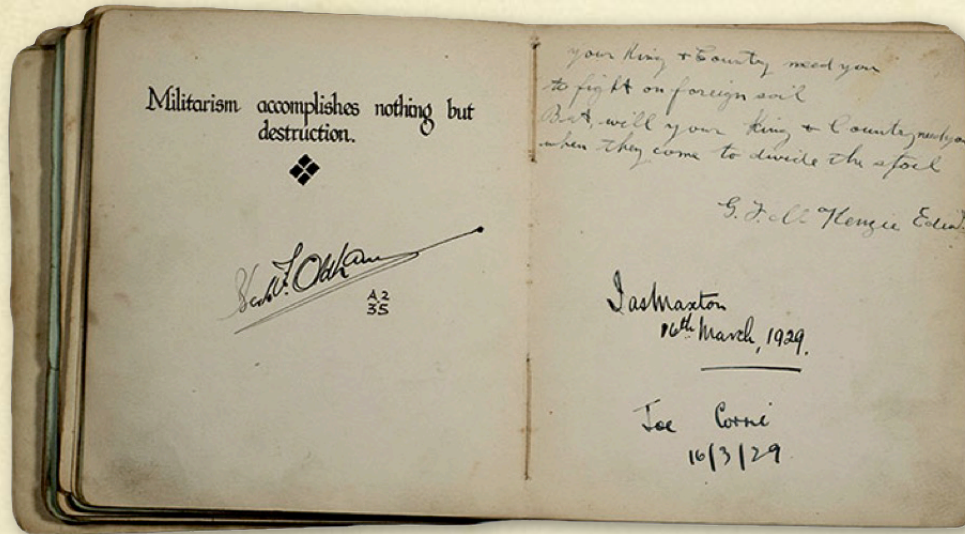 Militarism accomplishes nothing but
destruction.
F. Oldham
A.2
35
your King & Country need you
to fight on foreign soil
But, will your King & Country need you
when they come to divide the spoil
G. F. McKenzie
Jas Maxton
16th March, 1929.
Joe Corrie
16/3/29